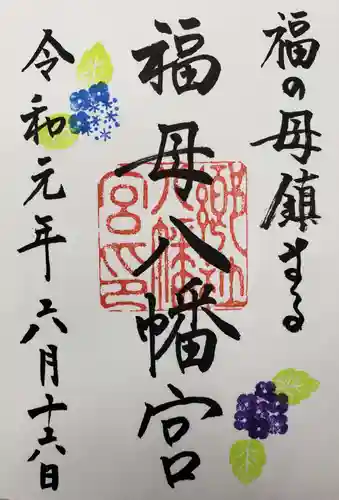 福の母鎮まる
福母八幡宮
令和元年六月十六日